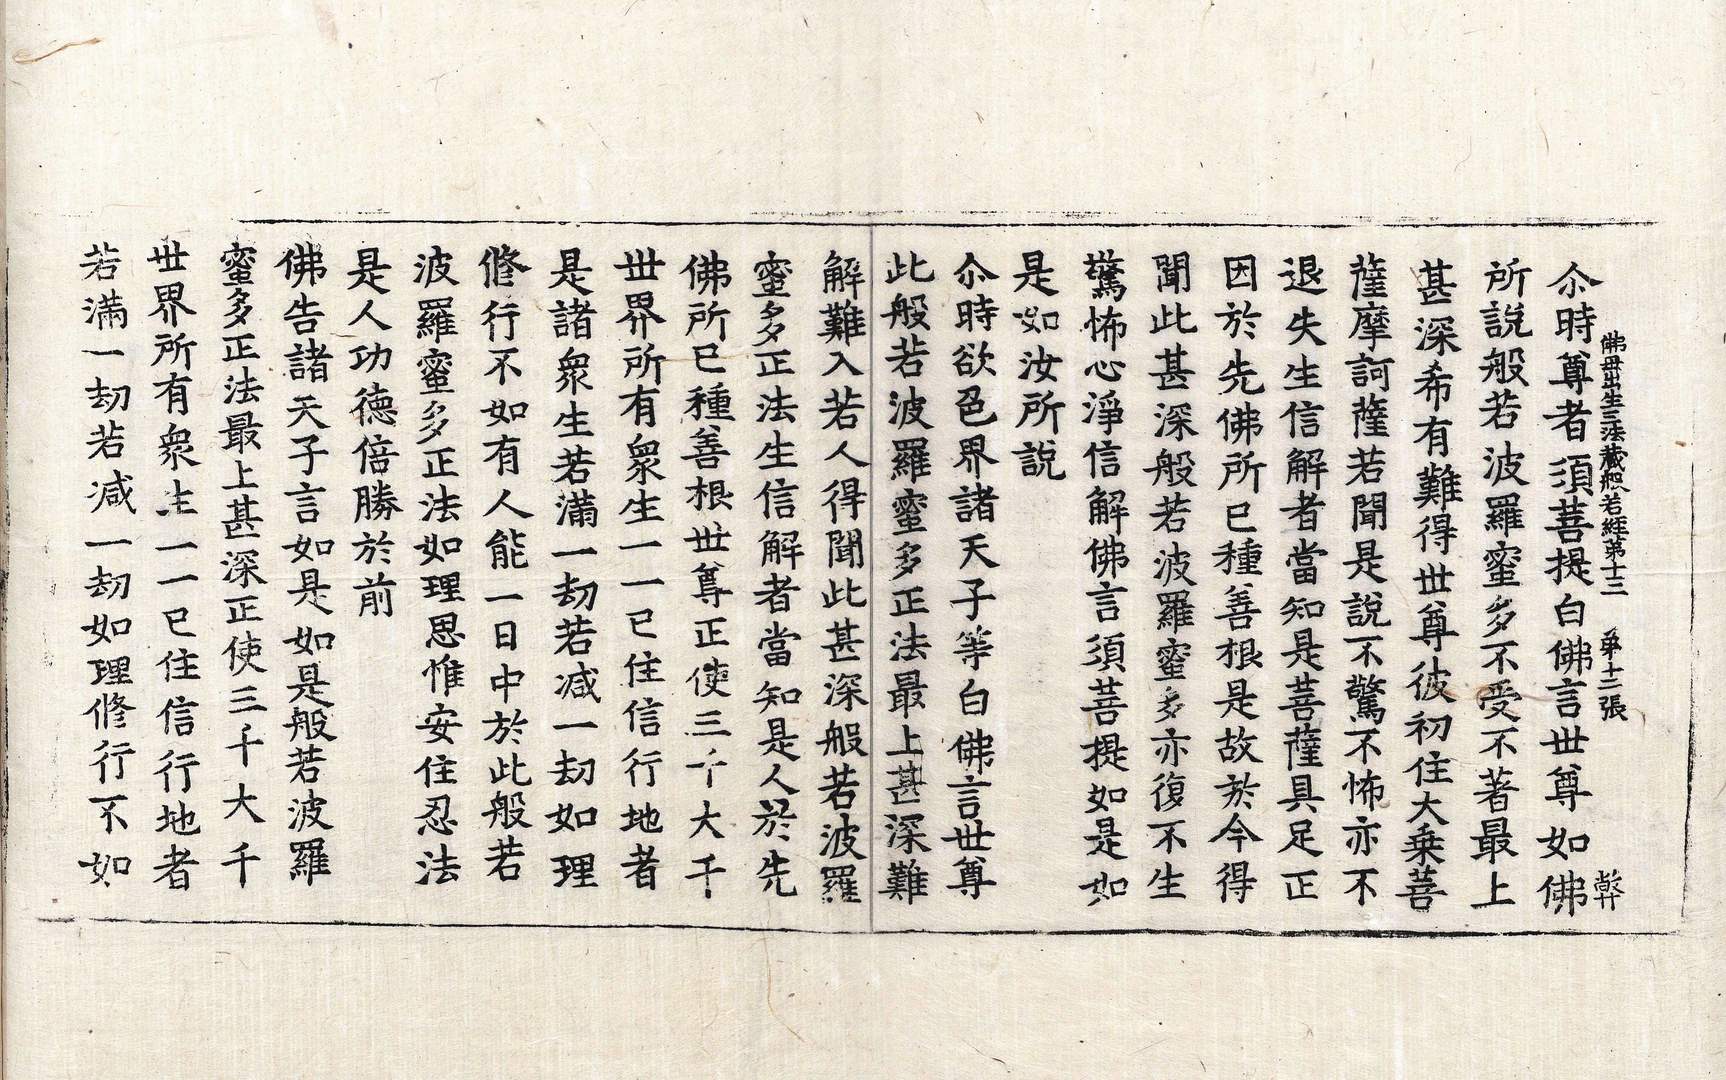 佛母出生三法藏般若經第十三　第十二張
尒時尊者須菩提白佛言世尊如佛
所說般若波羅蜜多不受不著最上
甚深希有難得世尊彼初住大乗菩
薩摩訶薩若聞是說不驚不怖亦不
退失生信解者當知是菩薩具足正
因於先佛所已種善根是故於今得
聞此甚深般若波羅蜜多亦復不生
驚怖心淨信解佛言須菩提如是如
是如汝所說
尒時欲色界諸天子等白佛言世尊
此般若波羅蜜多正法最上甚深難
解難入若人得聞此甚深般若波羅
蜜多正法生信解者當知是人於先
佛所已種善根世尊正使三千大千
世界所有衆生一一已住信行地者
是諸衆生若滿一劫若減一劫如理
修行不如有人能一日中於此般若
波羅蜜多正法如理思惟安住忍法
是人功德倍勝於前
佛告諸天子言如是如是般若波羅
蜜多正法最上甚深正使三千大千
世界所有衆生一一已住信行地者
若滿一劫若減一劫如理修行不如